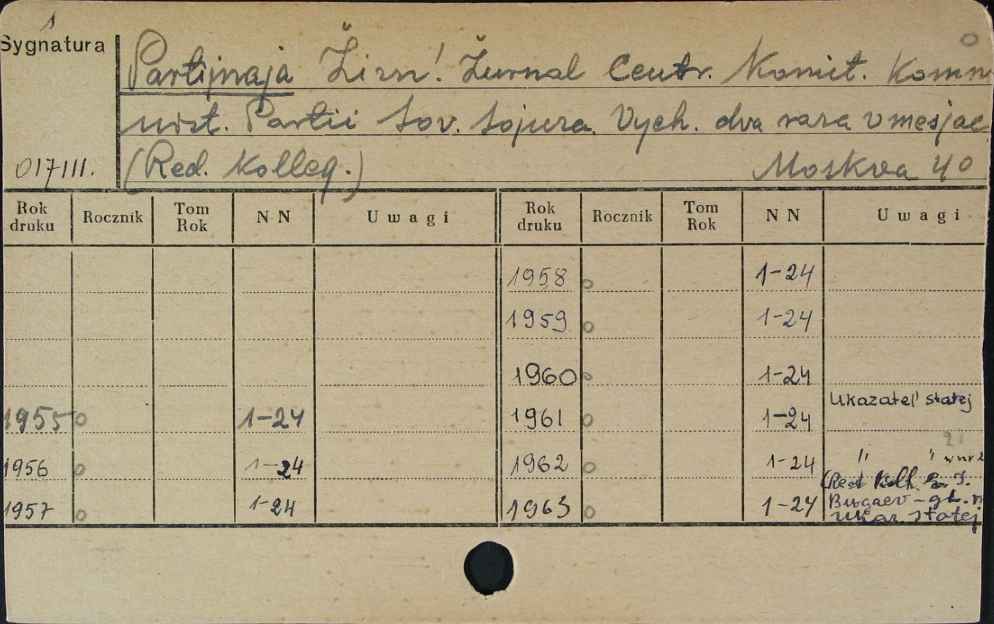 Sygnatura
Partijnaja Žizn'. Žurnal Centr. Komit. Komm
unist. Partii Sov. Sojuza. Vych. dva raza v mesjac
017111. (Red. Kolleg.) Moskva 40
Rok druku Rocznik Tom Rok NN Uwagi Rok druku Rocznik Tom Rok NN Uwagi
1958 1-24
1959 1-24
1960 1-24
1955 1-24 1961 1-24 Ukazatel' statej
1956 1-24 1962 1-24 " "
1957 1-24 1963 1-24 Bugaev - gl.
ukaz. statej